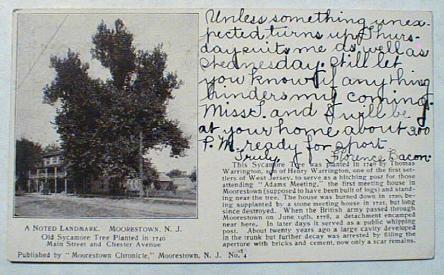 Unless something unex-
pected turns up Thurs-
day suits me as well as
Wednesday. Still let
you know if anything
hinders my coming.
Miss T. and I will be
at your home about 3.00
P.M. ready for sport.
Truly, Florence Bacon.
A NOTED LANDMARK. MOORESTOWN, N. J.
Old Sycamore Tree Planted in 1740
Main Street and Chester Avenue
Published by "Moorestown Chronicle," Moorestown, N. J. No. 4
This Sycamore Tree was planted in 1740 by Thomas
Warrington, son of Henry Warrington, one of the first set-
tlers of West Jersey, to serve as a hitching post for those
attending "Adams Meeting," the first meeting house in
Moorestown (supposed to have been built of logs) and stand-
ing near the tree. The house was burned down in 1720, be-
ing supplanted by a stone meeting house in 1721, but long
since destroyed. When the British army passed through
Moorestown on June 19th, 1778, a detachment encamped
near here. In later days it served as a public whipping
post. About twenty years ago a large cavity developed
in the trunk but further decay was arrested by filling the
aperture with bricks and cement, now only a scar remains.